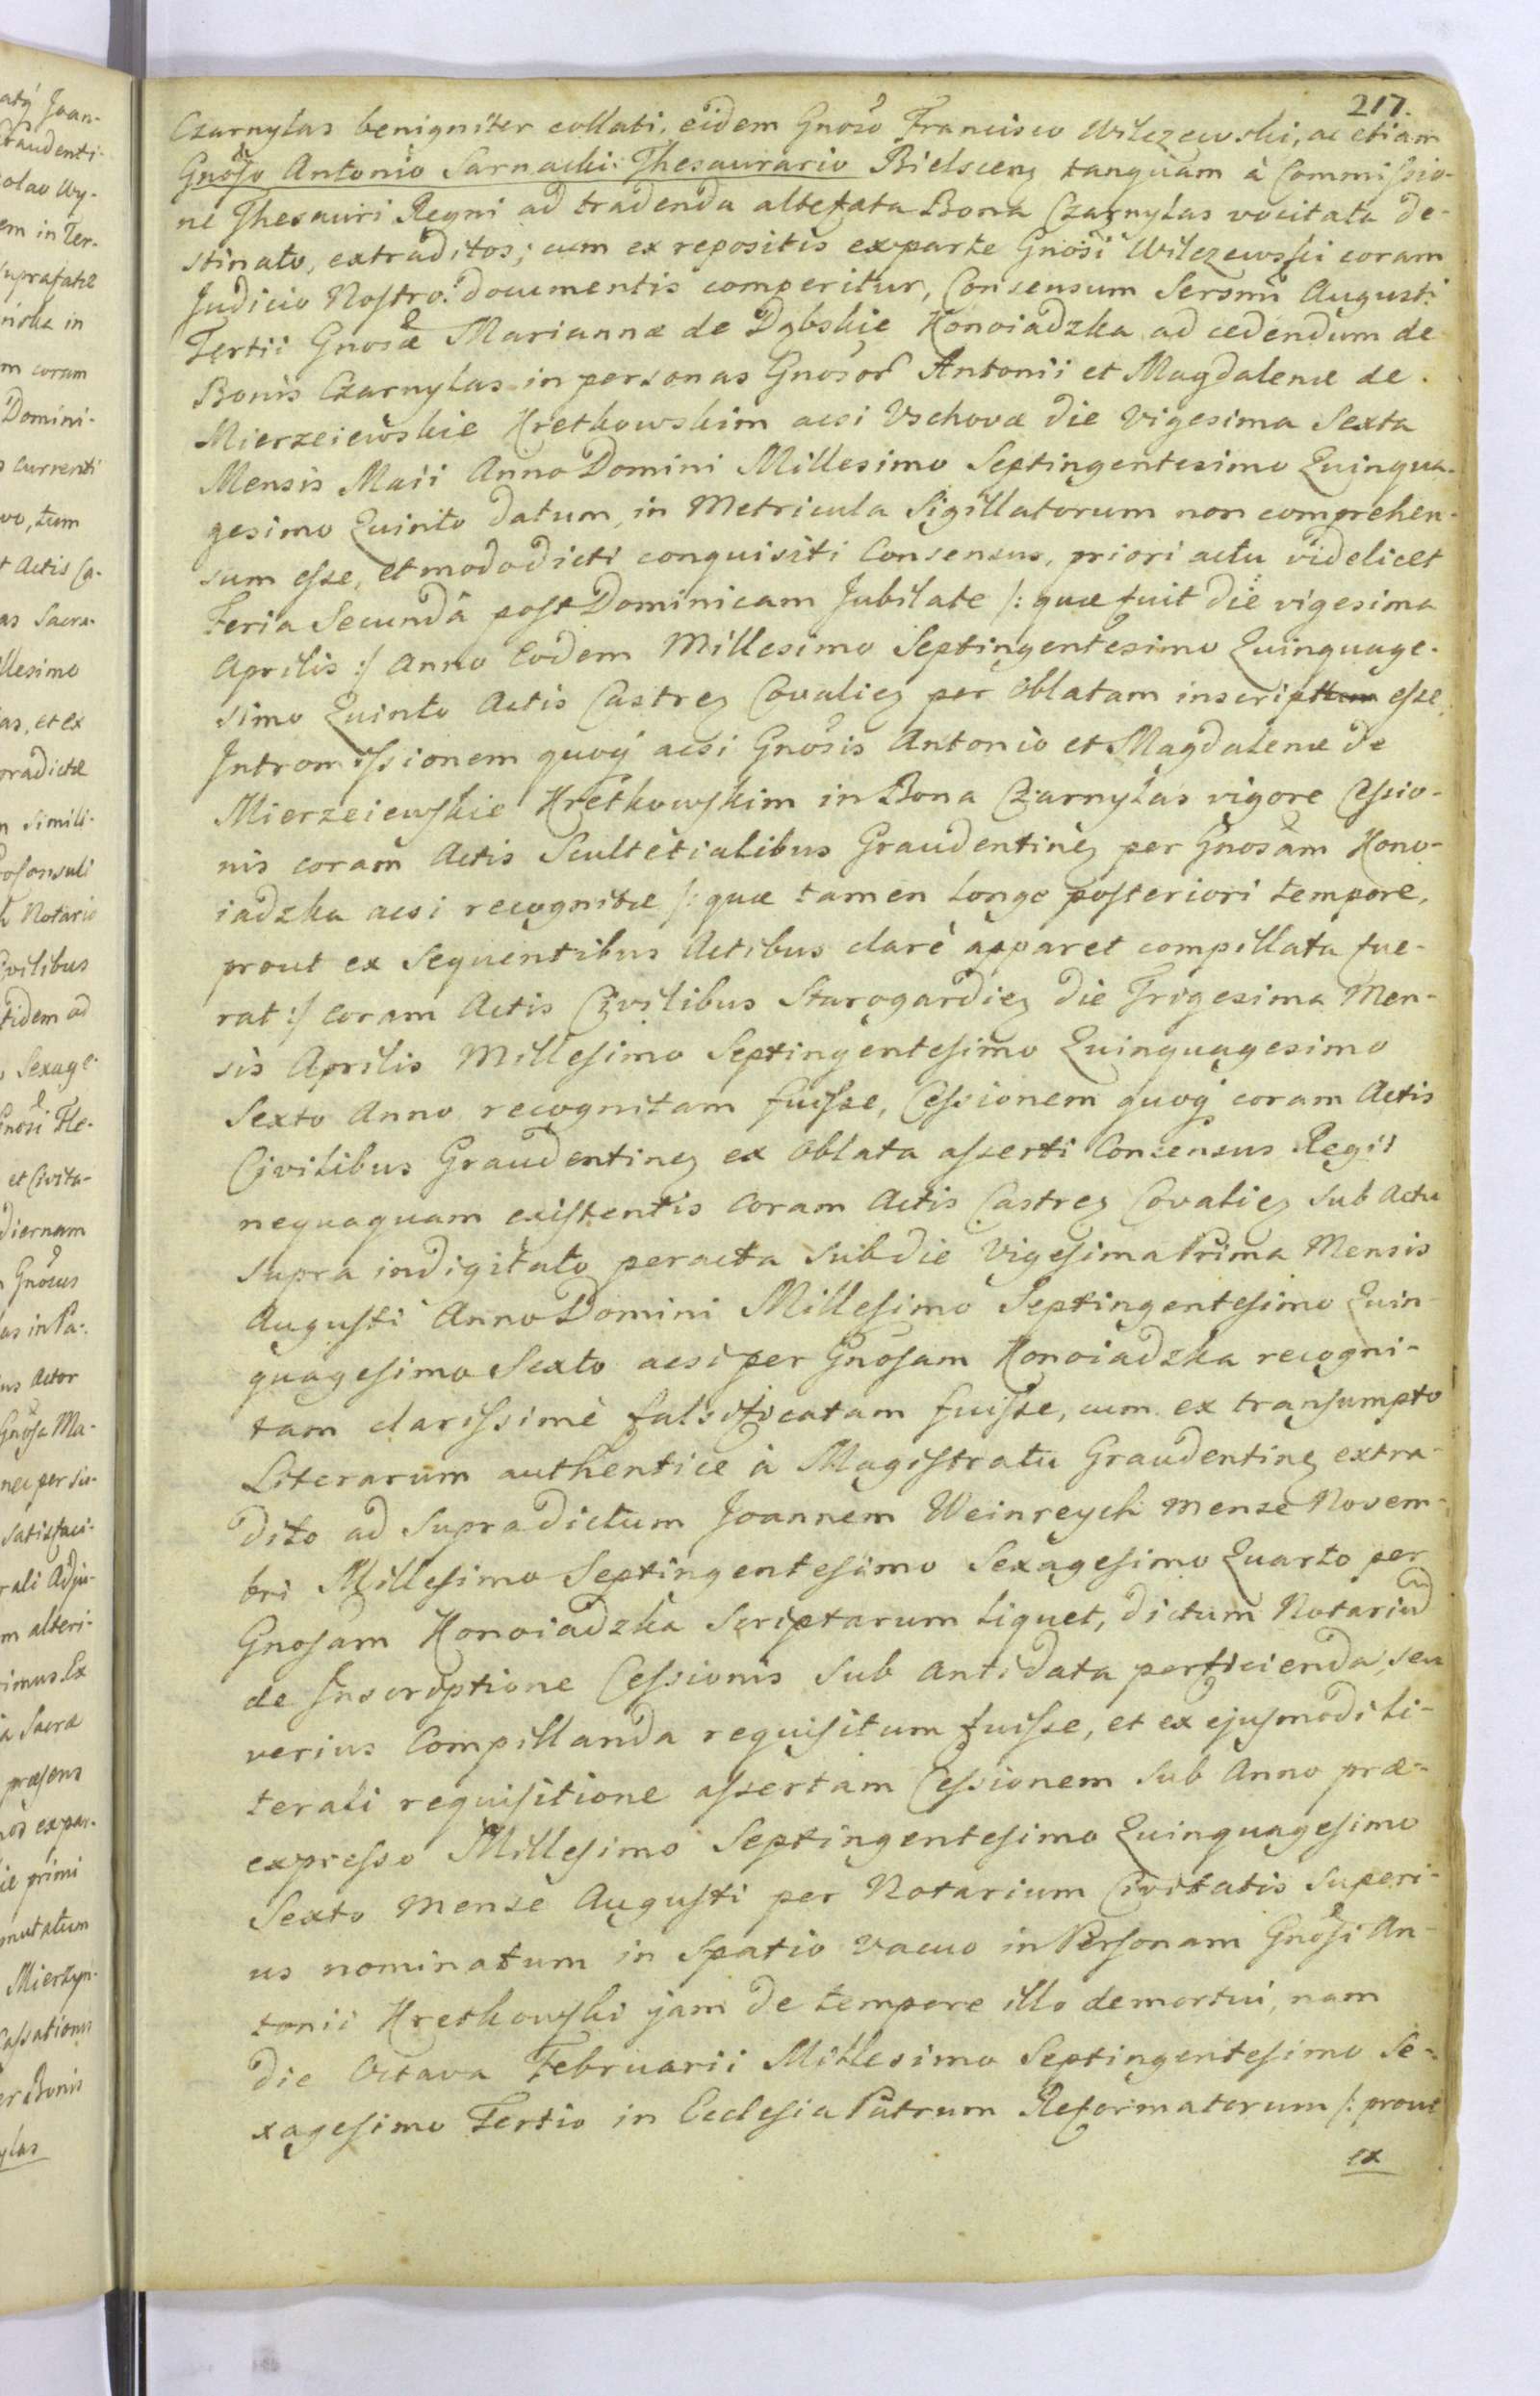 217.
Czarnylas benigniter collati, eidem Gnoso Francisco Wilczewski, ac etiam
Gnoso Antonio Sarnacki Thesaurario Bielscens tanquam à Commissio-
ne Thesauri Regni ad tradenda altefata Bona Czarnylas vocitata de-
stinato, extraditos; cum ex repositis exparte Gnosi Wilczewski coram
Judicio Nostro documentis comperitur, Consensum Sersmi Augusti
Tertii Gnosæ Mariannæ de Dąbskie Konoiadzka ad cedendum de
Bonis Czarnylas in personas Gnosor Antonii et Magdalenæ de
Mierzeiewskie Kretkowskim acsi Vschovæ die Vigesima Sexta
Mensis Maii Anno Domini Millesimo Septingentesimo Quinqua-
gesimo Quinto datum, in Metricula Sigillatorum non comprehen-
sum esse, et modo dicti conquisiti Consensus, priori actu videlicet
Feria Secundâ post Dominicam Jubilate /: quæ fuit die vigesima
Aprilis :/ Anno Eodem Millesimo Septingentesimo Quinquage-
simo Quinto Actis Castren Covalien per Oblatam inscriptum esse,
Intromissionem quoq acsi Gnosis Antonio et Magdalenæ de
Mierzeiewskie Kretkowskim in Bona Czarnylas vigore Cessio-
nis coram Actis Scultetialibus Graudentinen per Gnosam Kono-
iadzka acsi recognitæ /: quæ tamen longe posteriori tempore,
prout ex Sequentibus Actibus clarè apparet compillata fue-
rat :/ coram Actis Civilibus Starogardien die Trigesima Men-
sis Aprilis Millesimo Septingentesimo Quinquagesimo
Sexto Anno recognitam fuisse, Cessionem quoq coram Actis
Civilibus Graudentinen ex Oblata asserti Consensus Regii
nequaquam existentis Coram Actis Castren Covalien Sub Actu
supra indigitato peracta Sub die Vigesima Prima Mensis
Augusti Anno Domini Millesimo Septingentesimo Quin-
quagesimo Sexto acsi per Gnosam Konoiadzka recogni-
tam clarissimè falsificatam fuisse, cum ex transumpto
Literarum authentice à Magistratu Graudentinen extra-
dito ad Supradictum Joannem Weinreych Mense Novem-
bri Millesimo Septingentesimo Sexagesimo Quarto per
Gnosam Konoiadzka Scriptarum liquet, dictum Notariu
de Inscriptione Cessionis Sub Antidata perficienda, seu
verius Compillanda requisitum fuisse, et ex ejusmodi li-
terali requisitione assertam Cessionem Sub Anno præ-
expresso Millesimo Septingentesimo Quinquagesimo
Sexto Mense Augusti per Notarium Civitatis Superi-
us nominatum in Spatio vacuo in Personam Gnosi An-
tonii Kretkowski jam de tempore illo demortui, nam
die Octava Februarii Millesimo Septingentesimo Se-
xagesimo Tertio in Ecclesia Patrum Reformatorum /: prout
ex